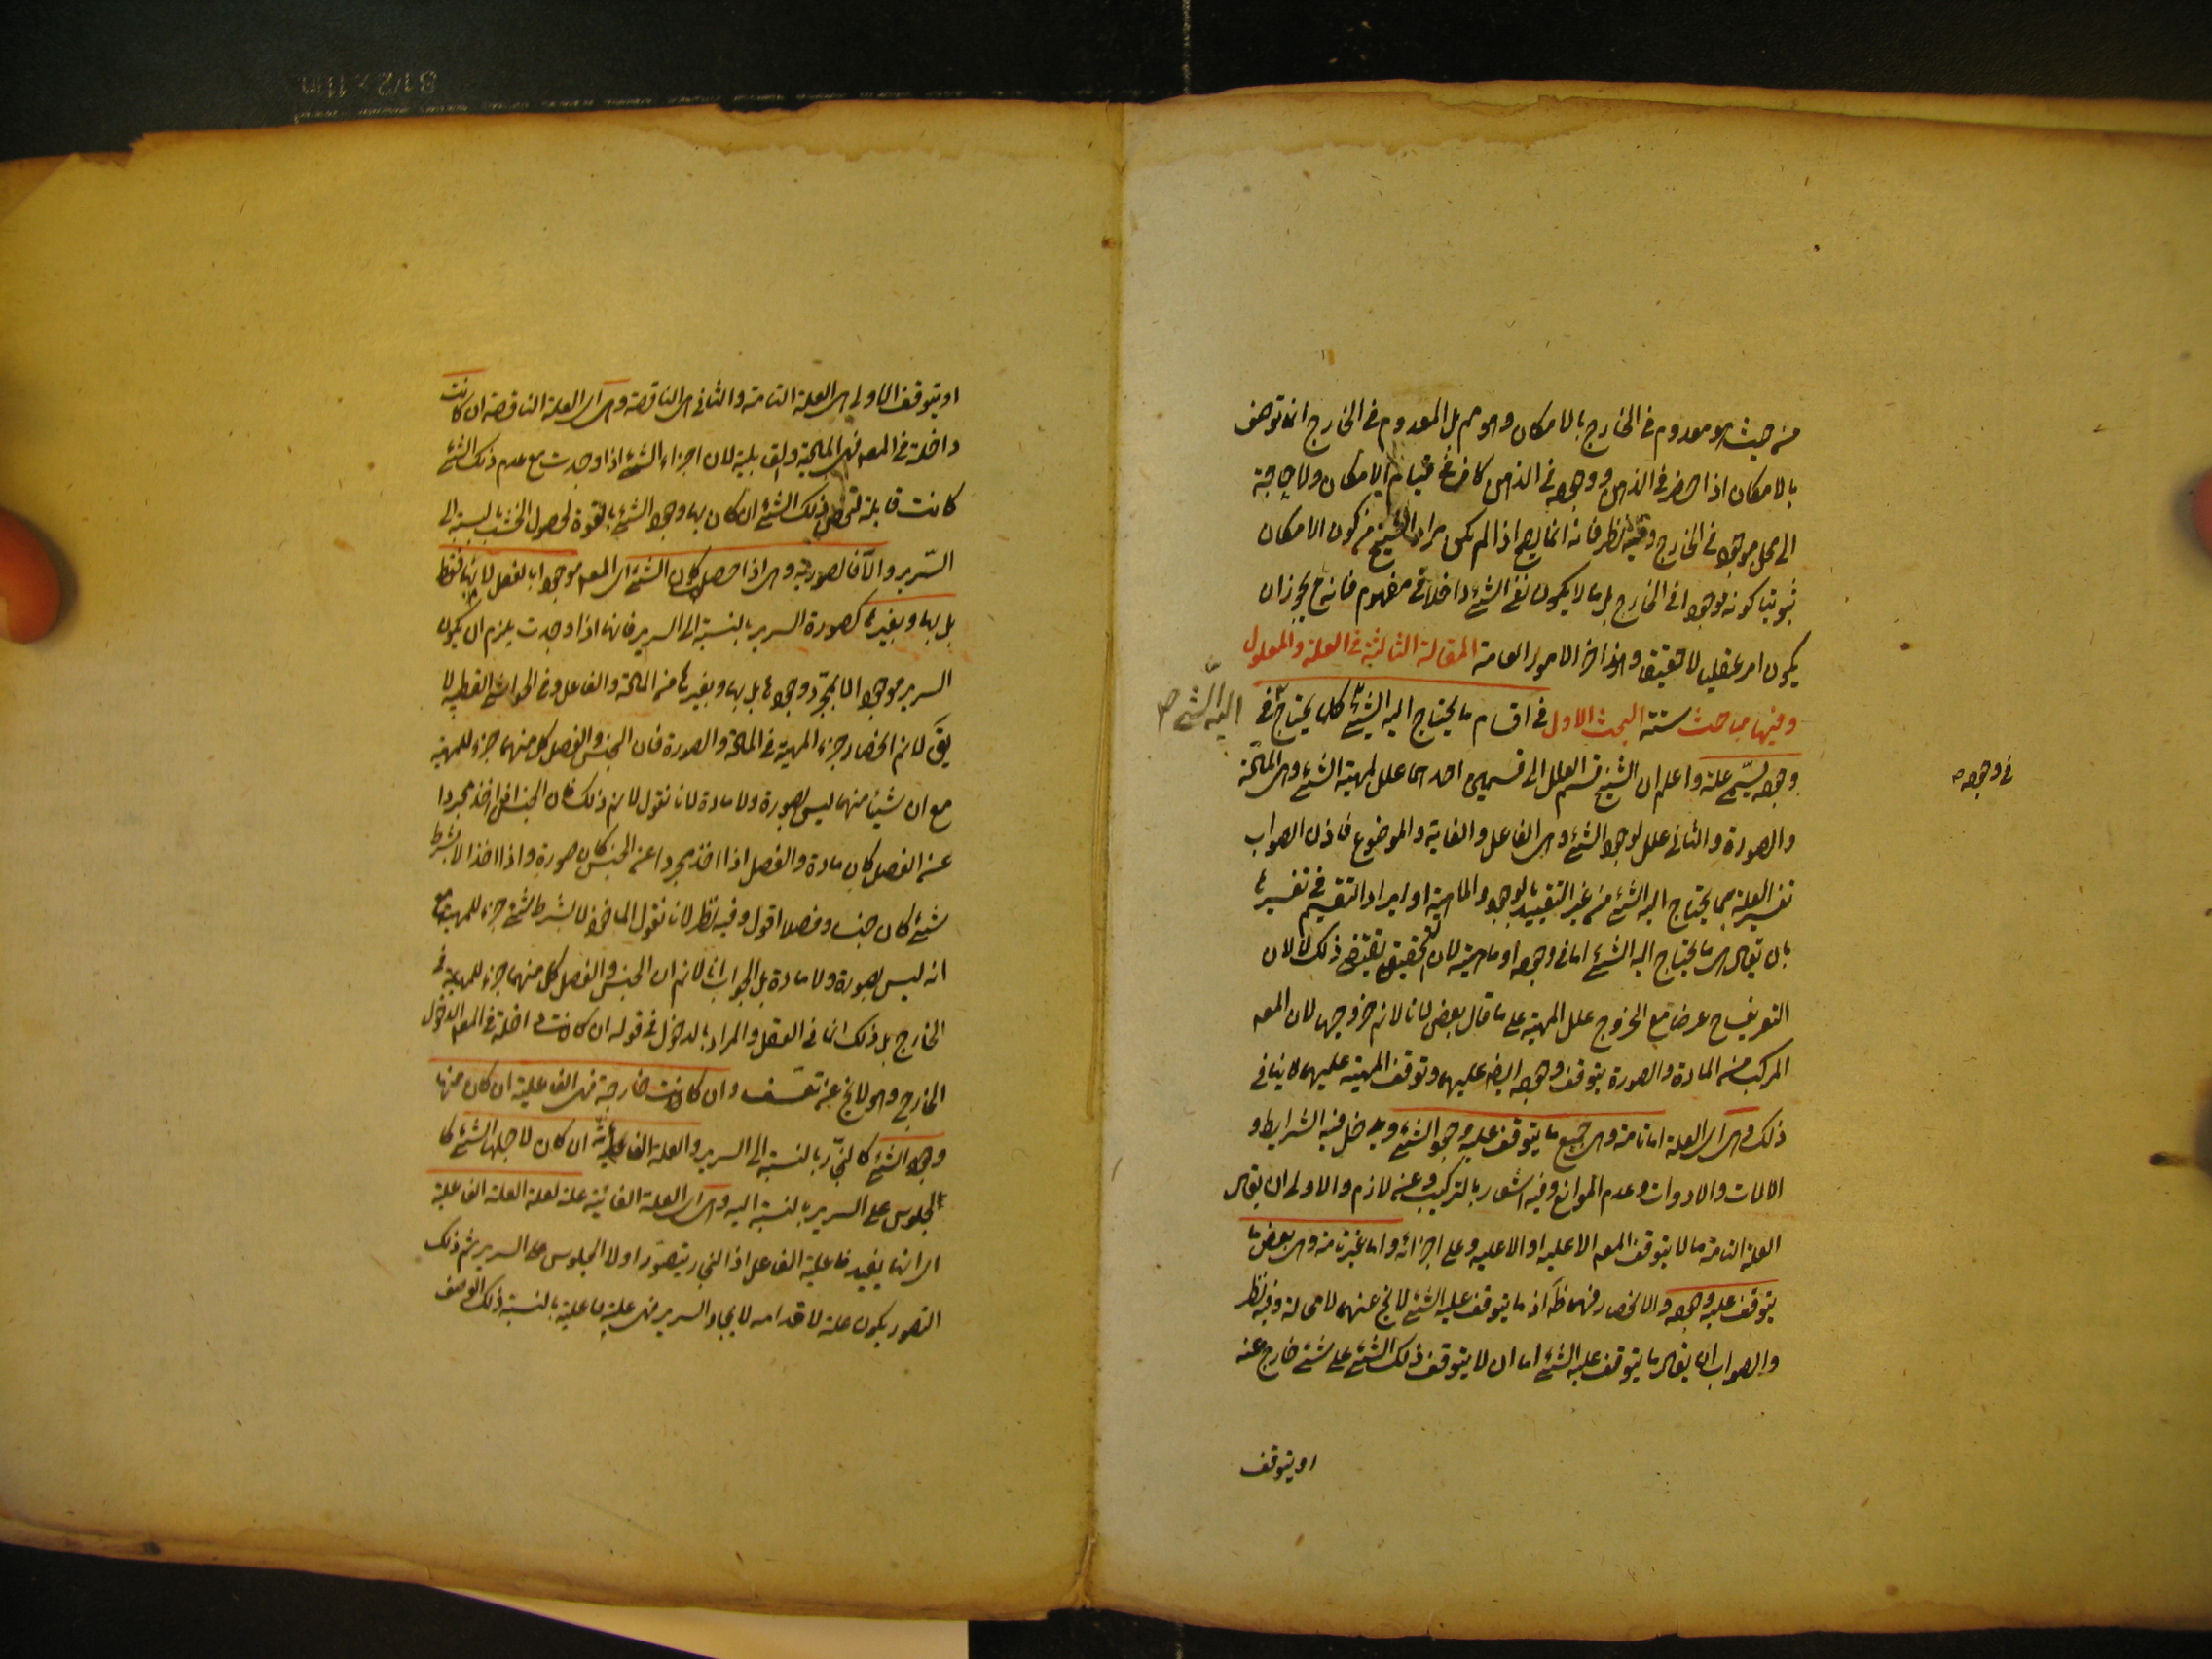 من حيث هو معدوم في الخارج بالامكان وهو مم بل المعدوم في الخارج انما توصف
بالامكان اذا حضر في الذهن ووجوده في الذهن كاف في قيام الامكان ولا حاجة
الى محل موجود في الخارج وفيه نظر فانه انما يصح اذا لم يكن مراد الشيخ من كون الامكان
ثبوتيا كونه موجودا في الخارج بل ما لا يكون نفي الشيء داخلا في مفهوم فانه ح يجوز ان
يكون امر عقليا لا حقيقيا وهذا اخر الامور العامة المقالة الثالثة في العلة والمعلول
وفيها مباحث ستة البحث الاول في اقسام ما يحتاج اليه الشيء كلما يحتاج في
اليه الشيء صح
وجوده يسمى علة واعلم ان الشيخ قسم العلل الى قسمين احدهما علل لمهية الشيء وهي المادة
في وجوده
والصورة والثاني علل لوجود الشيء وهي الفاعل والغاية والموضوع فاذن الصواب
تفسير العلة بما يحتاج اليه الشيء من غير التقييد بالوجود والماهية او ايراد التقسيم في تفسيرها
بان يقال هي ما يحتاج اليه الشيء اما في وجوده او ماهيته لان التحقيق يقتضي ذلك لا لان
التعريف ح عرضا مع الخروج علل المهية على ما قال بعض لانا لا نم خروجها لان المعه
المركب من المادة والصورة يتوقف وجوده ايضا عليهما وتوقف المهية عليهما لا ينافي
ذلك وهي اي العلة اما تامة وهي جميع ما يتوقف عليه وجود الشيء ويدخل فيه الشرايط و
الالات والادوات وعدم الموانع وفيه اشعار بالتركيب وعنه لازم والاولى ان يقال
العلة التامة ما لا يتوقف المعه الا عليه او الا عليه وعلى اجزائه واما غير تامة وهي بعض ما
يتوقف عليه وجوده والانحصار فيهما ظاهر اذ ما يتوقف عليه الشيء لا يخ عنهما لا محالة وفيه نظر
والصواب ان يقال ما يتوقف عليه الشيء اما ان لا يتوقف ذلك الشيء على شيء خارج عنه
او يتوقف
او يتوقف الاول هي العلة التامة والثاني هي الناقصة وهي اي العلة الناقصة ان كانت
داخلة في المعه فهي المادية والقابلية لان اجزاء الشيء اذا وجدت مع عدم ذلك الشيء
كانت قابلة لتحصل ذلك الشيء ان كان بها وجود الشيء بالقوة لحصول الخشب بالنسبة الى
السرير والا فالصورية وهي اذا حصل كان الشيء اي المعه موجودا بالفعل لا بها فقط
بل بها وبغيرها كصورة السرير بالنسبة الى السرير فانها اذا وجدت يلزم ان يكون
السرير موجودا لا بمجرد وجودها بل بها وبغيرها من المادة والفاعل وفي الحواشي القطبية لا
يق لا نم انحصار جزء المهية في المادة والصورة فان الجنس والفصل كل منهما جزء للمهية
مع ان شيئا منهما ليس بصورة ولا مادة لانا نقول لا نم ذلك فان الجنس اذا اخذ مجردا
عن الفصل كان مادة والفصل اذا اخذ مجردا عن الجنس كان صورة واذا اخذ لا بشرط
شيء كان جنسا وفصلا اقول وفيه نظر لانا نقول الماخوذ لا بشرط شيء جزء للمهية مع
انه ليس بصورة ولا مادة بل الجواب انا لا نم ان الجنس والفصل كل منهما جزء للمهية في
الخارج بل ذلك انما في العقل والمراد بالدخول في قوله ان كانت داخلة في المعه الدخول
الخارج وهو لا يخ عن تعسف وان كانت خارجة فهي الفاعلية ان كان منها
وجود الشيء كالنجار بالنسبة الى السرير والعلة الغائية ان كان لاجلها الشيء كا
لجلوس على السرير بالنسبة اليه وهي اي العلة الغائية علة لعلية العلة الفاعلية
اي انها يفيد فاعلية الفاعل اذ النجار يتصور اولا الجلوس على السرير ثم ذلك
التصور يكون علة لاقدامه لايجاد السرير فهي علية فاعلية بالنسبة ذلك الوصف